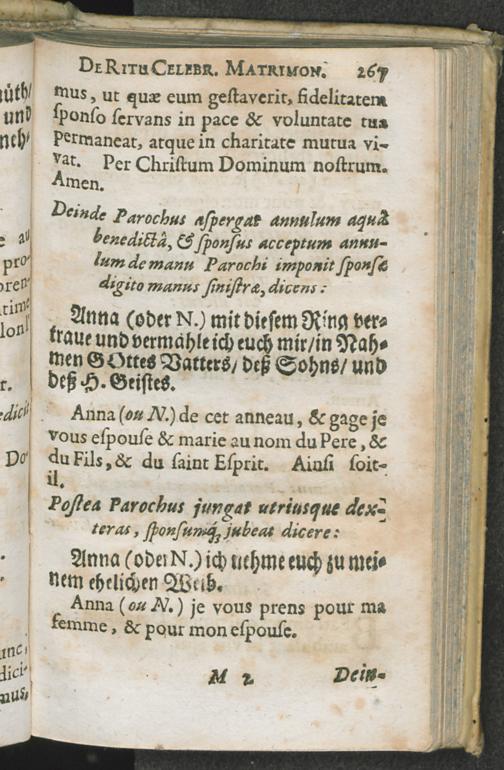 müth/
und
neh-
e au
pro-
pren-
time
lonl
r.
edicit
Do-
unc,
dici-
mus,
DE RITU CELEBR. MATRIMON. 267
mus, ut quæ eum geſtaverit, fidelitatem
ſponſo ſervans in pace & voluntate tua
permaneat, atque in charitate mutua vi-
vat. Per Chriſtum Dominum noſtrum.
Amen.
Deinde Parochus aſpergat annulum aquâ
benedictâ, & ſponſus acceptum annu-
lum de manu Parochi imponit ſponſæ
digito manus ſiniſtræ, dicens:
Anna (oder N.) mit dieſem Ring ver-
traue und vermähle ich euch mir/in Nah-
men GOttes Vatters/ deß Sohns/ und
deß H. Geiſtes.
Anna (ou N.) de cet anneau, & gage je
vous eſpouſe & marie au nom du Pere, &
du Fils, & du ſaint Eſprit. Ainſi ſoit-
il.
Poſtea Parochus jungat utriusque dex-
teras, ſponſumq́; jubeat dicere:
Anna (oder N.) ich nehme euch zu mei-
nem ehelichen Weib.
Anna (ou N.) je vous prens pour ma
femme, & pour mon eſpouſe.
M 2 Dein-